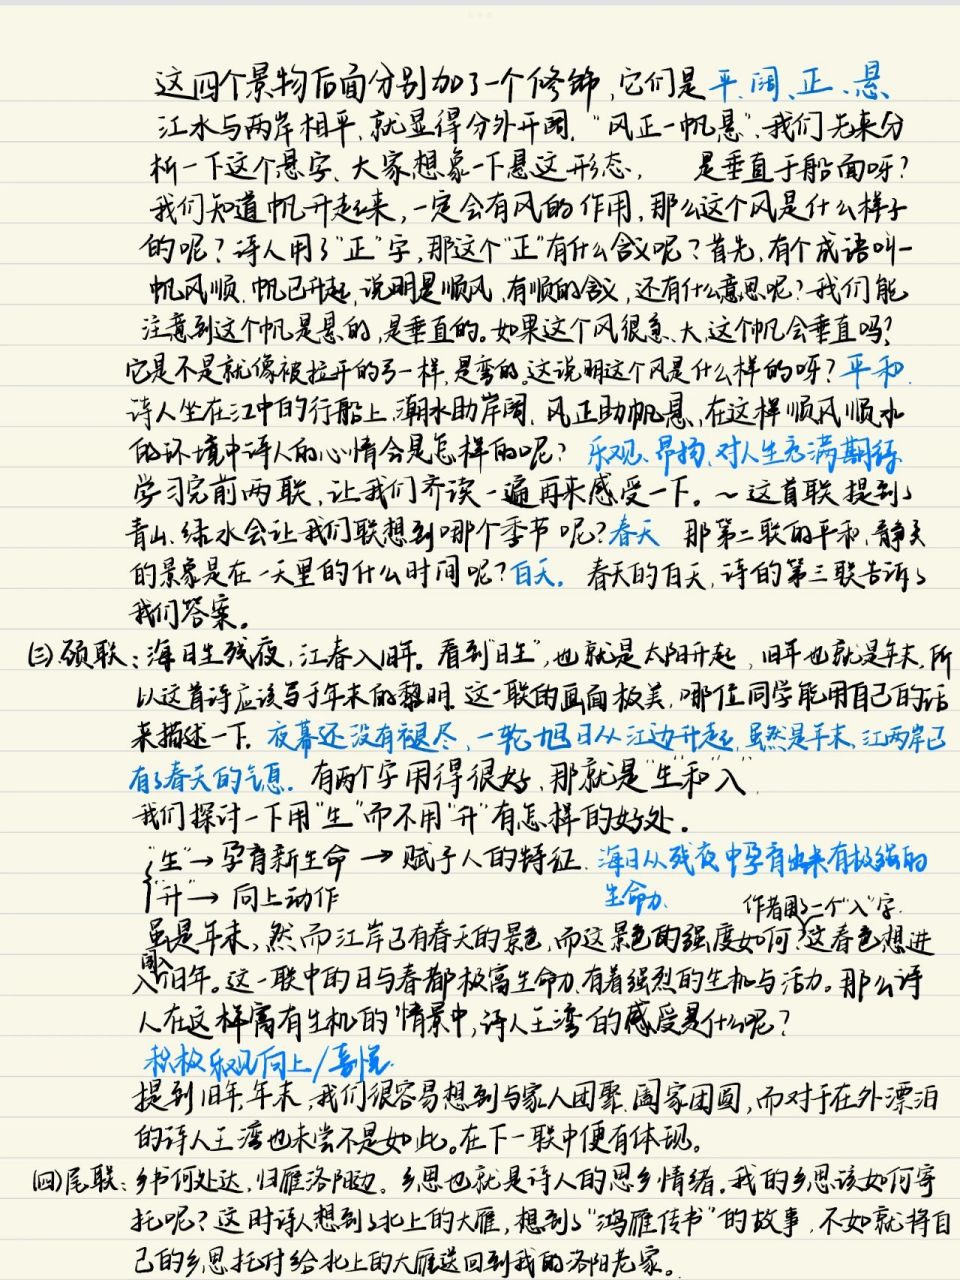 这四个景物后面分别加了一个修饰,它们是平、阔、正、悬
江水与两岸相平,就显得分外开阔,"风正一帆悬",我们先来分
析一下这个悬字、大家想象一下悬这形态, 是垂直于船面呀?
我们知道帆升起来,一定会有风的作用,那么这个风是什么样子
的呢?诗人用了"正"字,那这个"正"有什么含义呢?首先,有个成语叫一
帆风顺,帆已升起,说明是顺风,有顺的含义,还有什么意思呢?我们能
注意到这个帆是悬的,是垂直的。如果这个风很急、大、这个帆会垂直吗?
它是不是就像被拉开的弓一样,是弯的。这说明这个风是什么样的呀?平和.
诗人坐在江中的行船上,潮水助岸阔,风正助帆悬,在这样顺风顺水
的环境中诗人的心情会是怎样的呢?乐观、昂扬、对人生充满期待
学习完前两联,让我们齐读一遍再来感受一下。~这首联提到了
青山、绿水会让我们联想到哪个季节呢?春天 那第二联的平和,静美
的景象是在一天里的什么时间呢?白天. 春天的白天,诗的第三联告诉了
我们答案。
(三)颈联:海日生残夜,江春入旧年。看到"日生",也就是太阳升起,旧年也就是年末,所
以这首诗应该写于年末的黎明.这一联的画面极美,哪位同学能用自己的话
来描述一下.夜幕还没有褪尽,一轮旭日从江边升起,虽然是年末,江两岸已
有了春天的气息. 有两个字用得很好,那就是"生"和"入"
我们探讨一下用"生"而不用"升"有怎样的好处.
"生"→孕育新生命→赋予人的特征.海日从残夜中孕育出来有极强的
"升"→向上动作 生命力.
作者用了一个"入"字.
虽是年末,然而江岸已有春天的景色,而这景色的强度如何?这春色想进
入旧年。这一联中的日与春都极富生命力,有着强烈的生机与活力。那么诗
人在这样富有生机的情景中,诗人王湾的感受是什么呢?
积极乐观向上/喜悦.
提到旧年,年末,我们很容易想到与家人团聚,阖家团圆,而对于在外漂泊
的诗人王湾也未尝不是如此。在下一联中便有体现。
(四)尾联:乡书何处达,归雁洛阳边。乡思也就是诗人的思乡情绪。我的乡思该如何寄
托呢?这时诗人想到了北上的大雁,想到了"鸿雁传书"的故事,不如就将自
己的乡思托付给北上的大雁送回到我的洛阳老家。